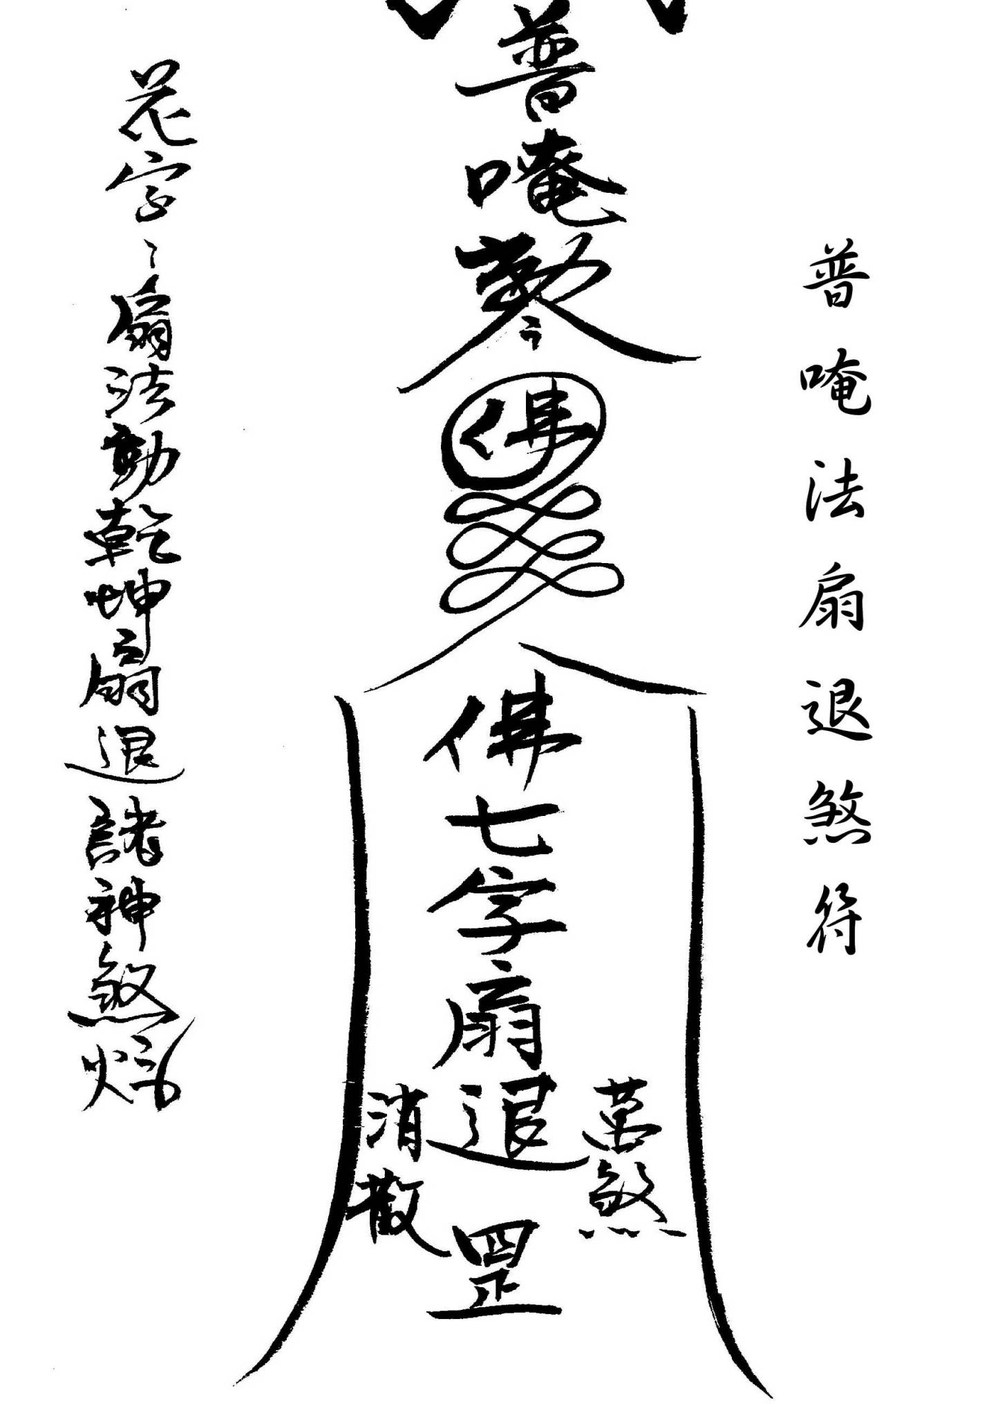 普唵法扇退煞符
普唵勅令
佛
佛七字扇退罡
萬煞
消散
花字：扇法動乾坤扇退諸神煞